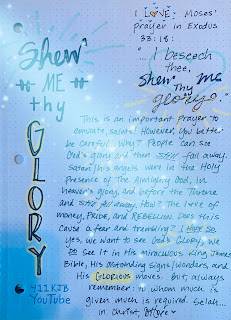 I LOVE Moses'
prayer in Exodus
33:18:
"I beseech
thee,
Shew me
thy
glory."
Shew
ME
thy
GLORY
This is an important prayer to
emulate, Saints! However, you better
be careful. Why? People can see
God's glory and then still fall away.
Satan/his angels were in the Holy
Presence of The Almighty God, in
heaven's glory, and before the Throne
and still fell away. How? The love of
money, PRIDE, and REBELLION. Does this
cause a fear and trembling? I hope so.
Yes, we want to see God's Glory, we
do see it in His miraculous King James
Bible, His astounding signs/wonders, and
His GLORIOUS moves. But, always
remember: to whom much is
given much is required. Selah...
in Christ,
411 KJB
YouTube